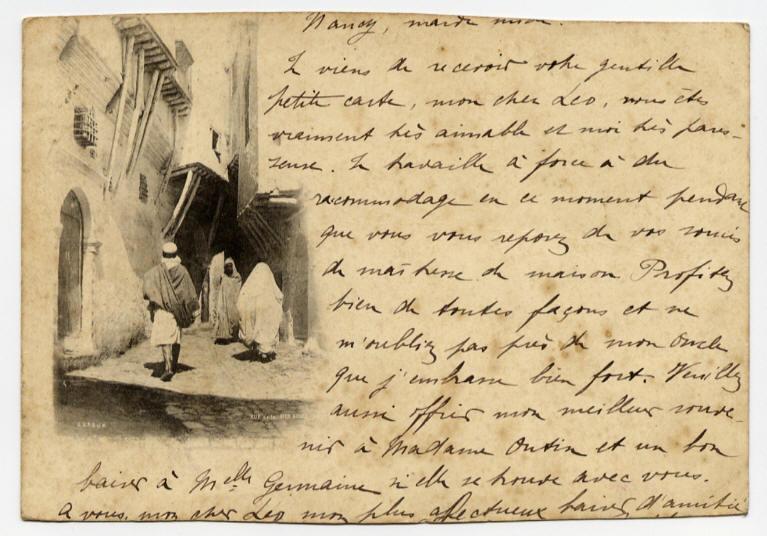 Nancy, mardi
Je viens de recevoir votre gentille
petite carte, mon cher Léo, vous êtes
vraiment très aimable et moi très pares-
seuse. Je travaille à force à du
racommodage en ce moment pendant
que vous vous reposez de vos soucis
de maîtresse de maison Profitez
bien de toutes façons et ne
m'oubliez pas près de mon Oncle
que j'embrasse bien fort. Veuillez
aussi offrir mon meilleur souve-
nir à Madame et un bon
baiser à Melle Germaine si elle se trouve avec vous.
A vous, mon cher Léo mon plus affectueux baiser d'amitié
RUE